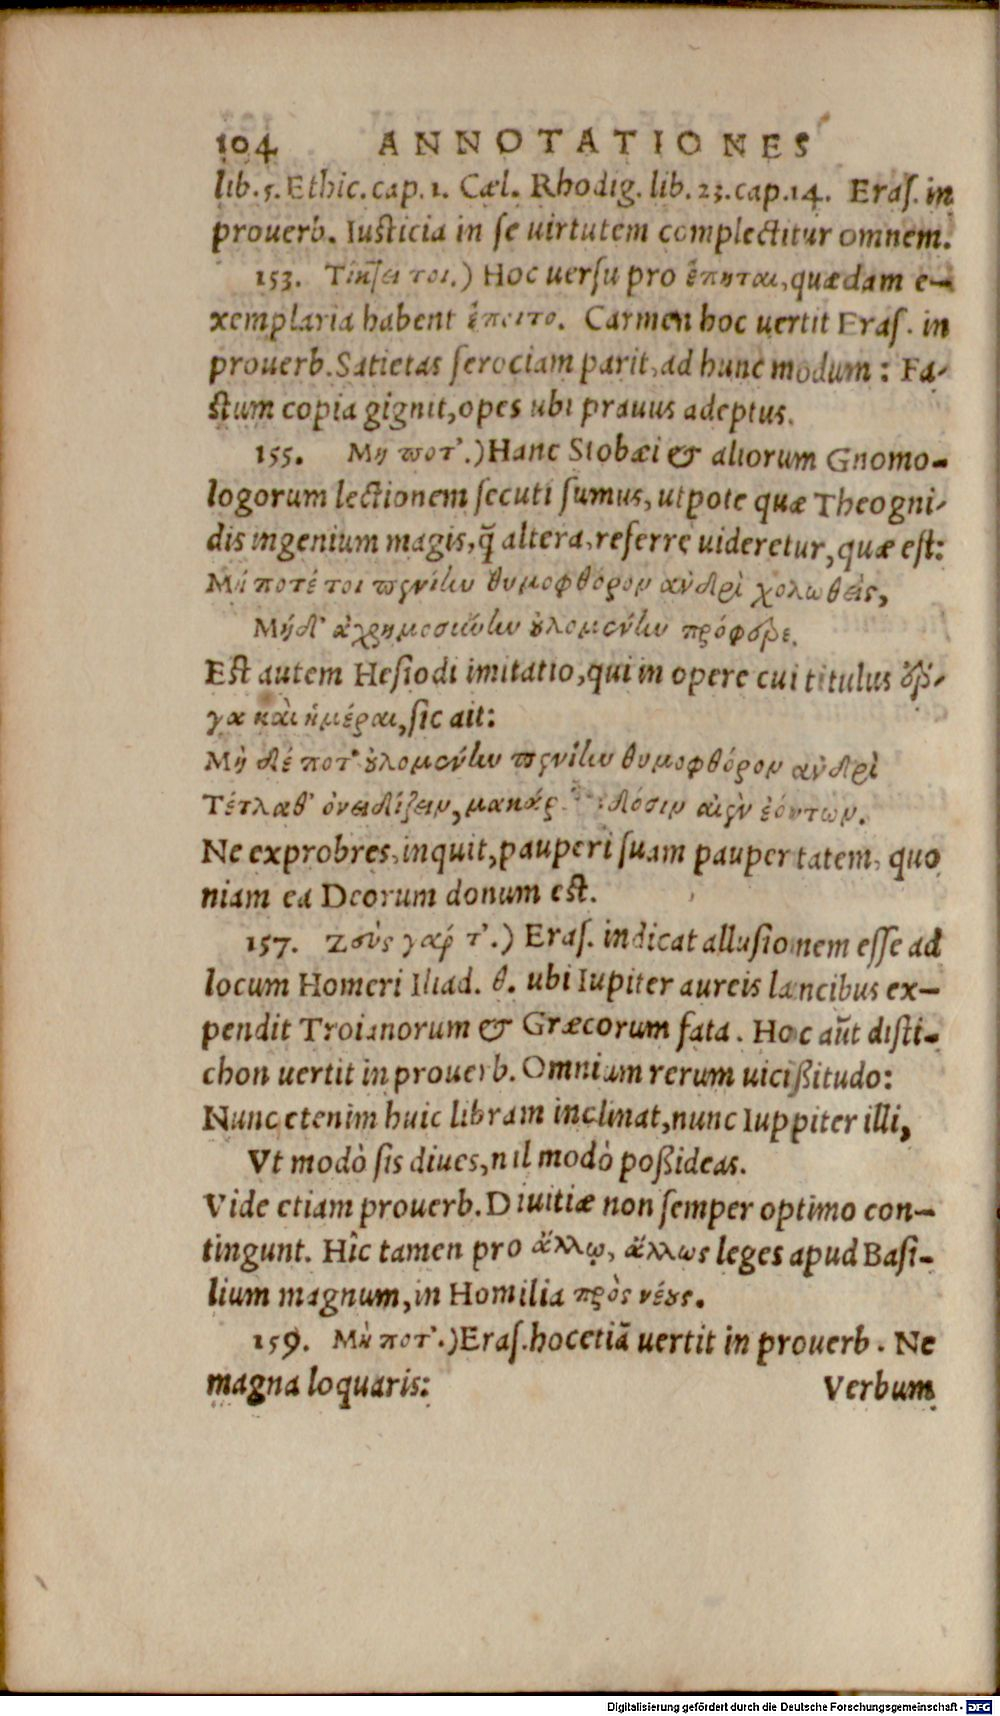 104 ANNOTATIONES
lib.5. Ethic.cap.1. Cæl. Rhodig. lib.23.cap.14. Eras. in
prouerb. Iusticia in se uirtutem complectitur omnem.
153. Τίκτει τοι.) Hoc uersu pro ἕπηται, quædam e-
xemplaria habent ἕποιτο. Carmen hoc uertit Eras. in
prouerb. Satietas ferociam parit, ad hunc modum: Fa-
stum copia gignit, opes ubi prauus adeptus.
155. Μη ποτ'.) Hanc Stobæi & aliorum Gnomo-
logorum lectionem secuti sumus, utpote quæ Theogni-
dis ingenium magis, q̃ altera, referre uideretur, quæ est:
Μή ποτέ τοι πενίην θυμοφθόρον ἀνδρὶ χολωθείς,
Μήδ' ἀχρημοσύνην οὐλομένην πρόφερε.
Est autem Hesiodi imitatio, qui in opere cui titulus ἔρ-
γα καὶ ἡμέραι, sic ait:
Μὴ δέ ποτ' οὐλομένην πενίην θυμοφθόρον ἀνδρὶ
Τέτλαθ' ὀνειδίζειν, μακάρ δόσιν αἰὲν ἐόντων.
Ne exprobres, inquit, pauperi suam paupertatem, quo
niam ea Deorum donum est.
157. Ζεὺς γάρ τ'.) Eras. indicat allusionem esse ad
locum Homeri Iliad. θ. ubi Iupiter aureis lancibus ex-
pendit Troianorum & Græcorum fata. Hoc aũt disti-
chon uertit in prouerb. Omnium rerum uicißitudo:
Nunc etenim huic libram inclinat, nunc Iuppiter illi,
Vt modò sis diues, nil modò poßideas.
Vide etiam prouerb. Diuitiæ non semper optimo con-
tingunt. Hîc tamen pro ἄλλῳ, ἄλλως leges apud Basi-
lium magnum, in Homilia πρὸς νέους.
159. Μή ποτ'.) Eras. hoc etiã uertit in prouerb. Ne
magna loquaris: Verbum
Digitalisierung gefördert durch die Deutsche Forschungsgemeinschaft - DFG